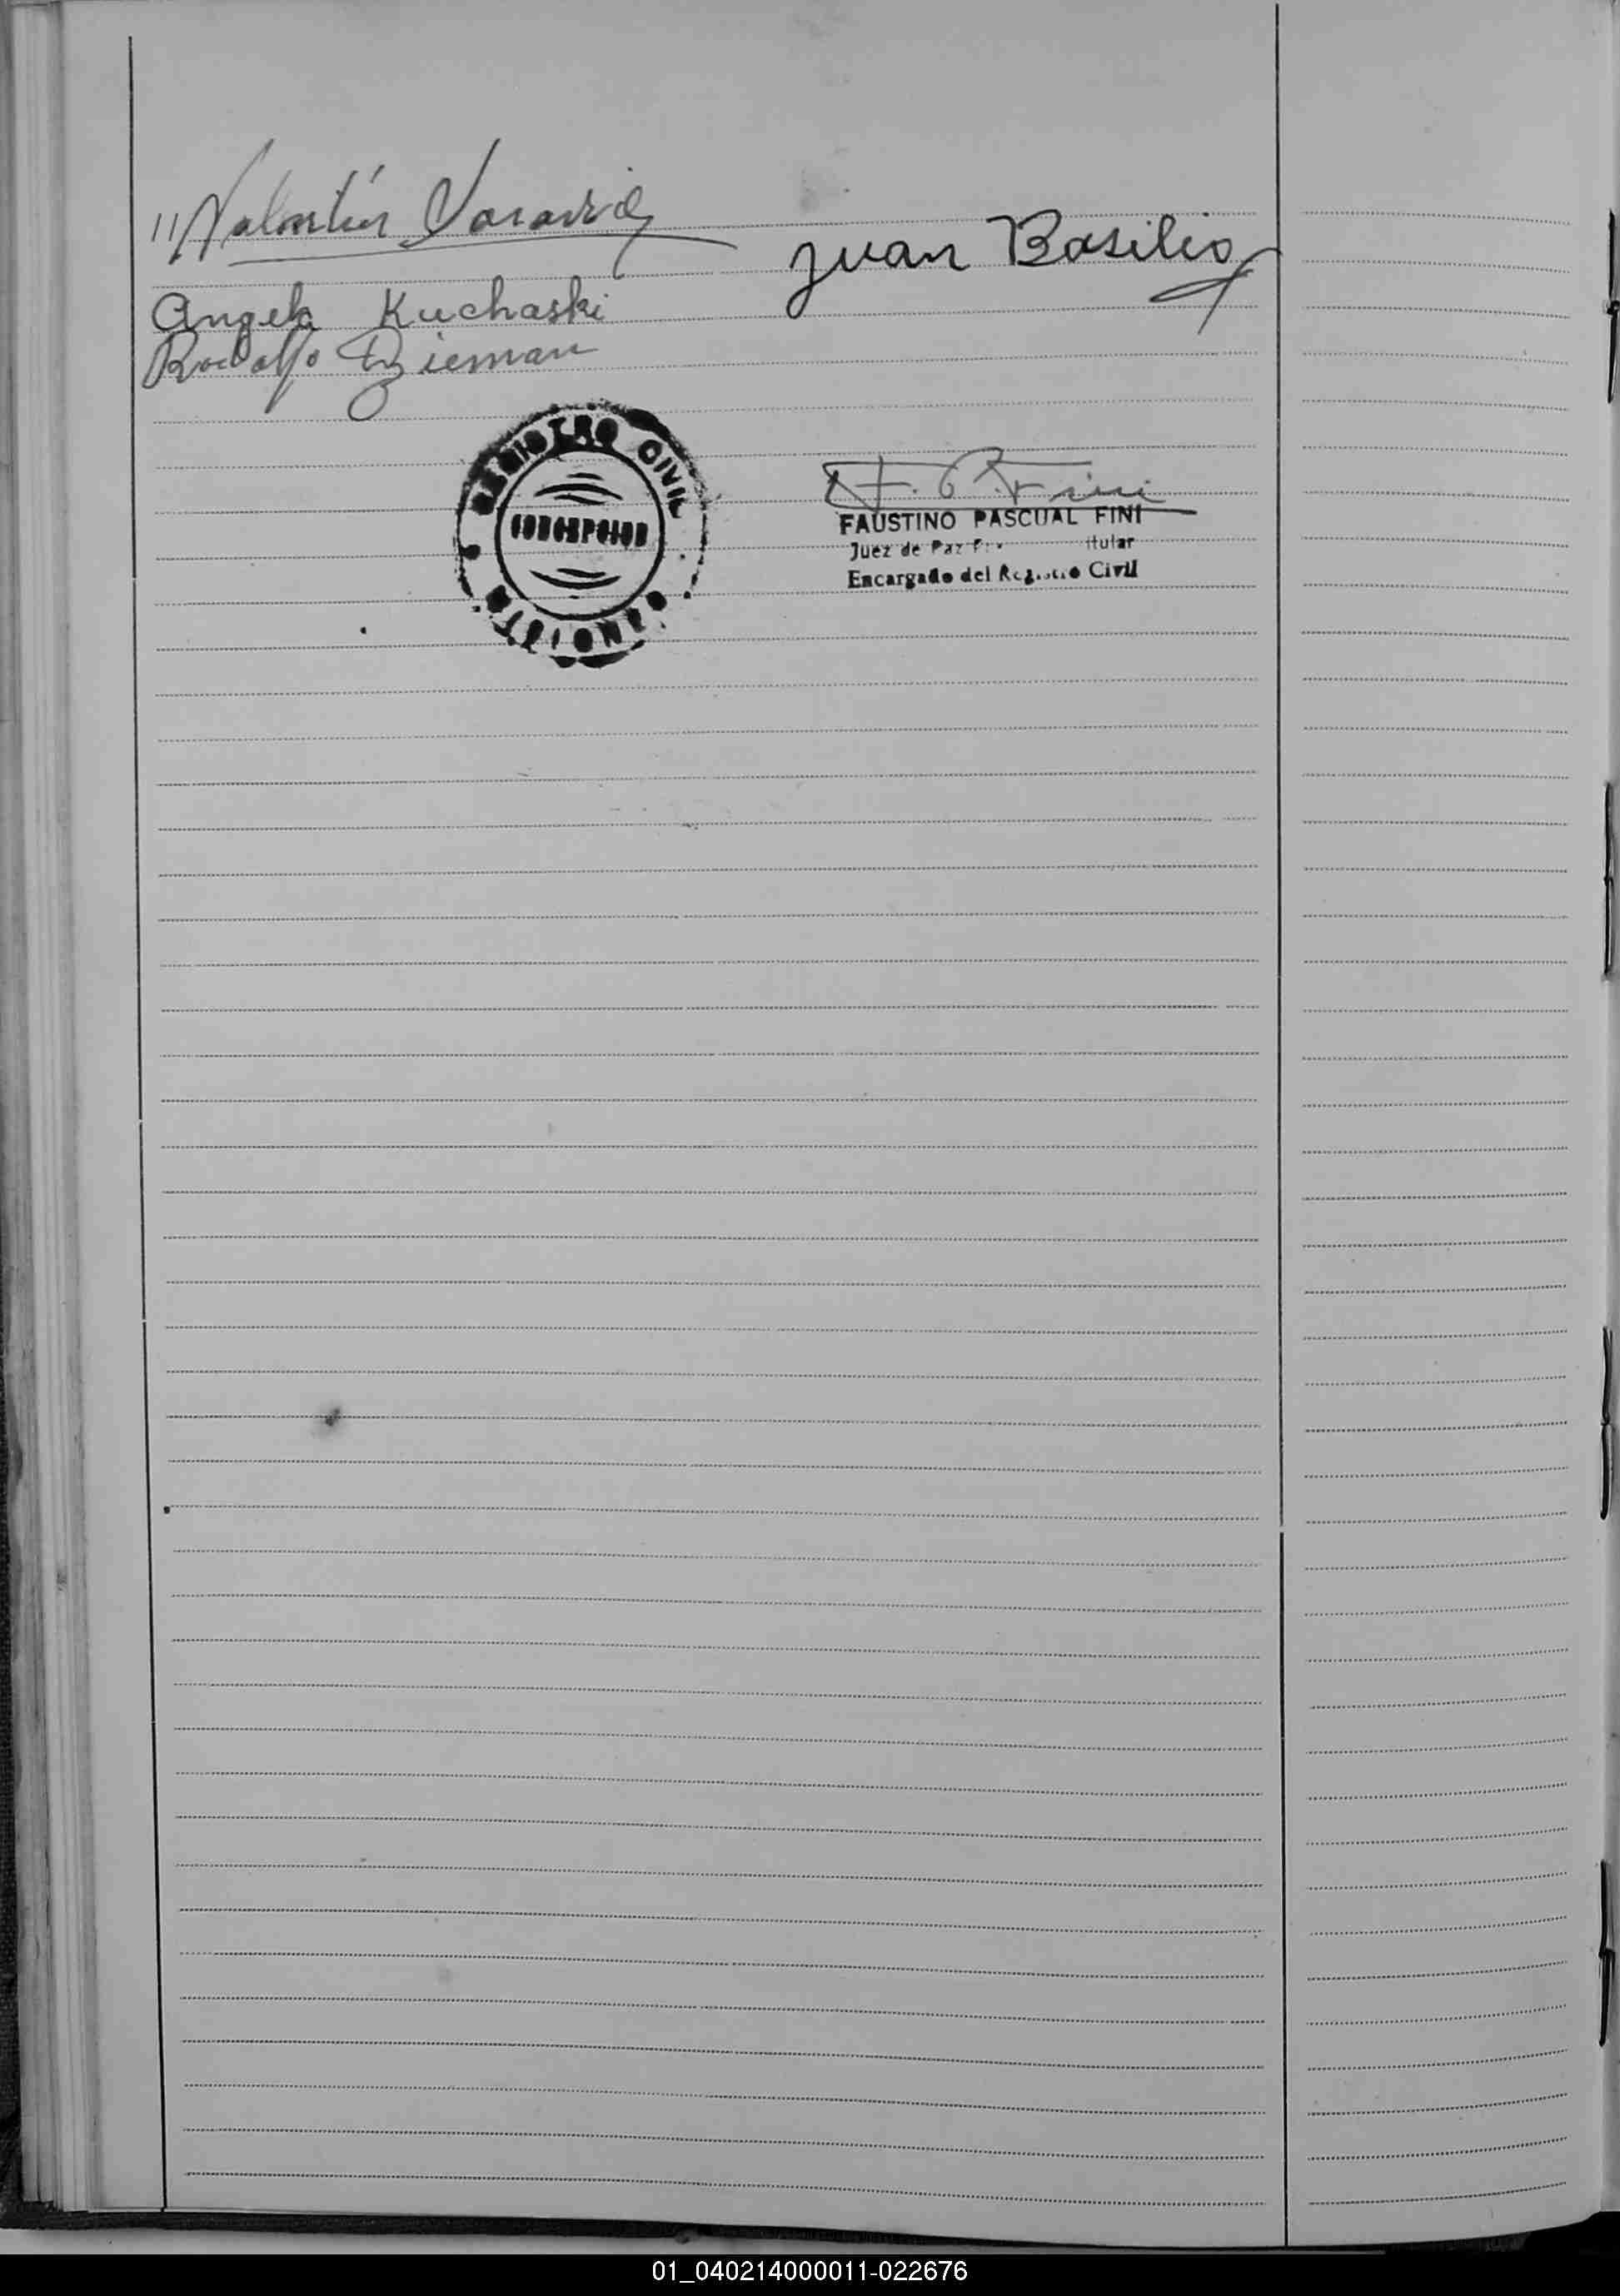 "Valentín
Juan Basilio
Angela Kuchaski
Rodolfo Dzieman
REGISTRO CIVIL
CONCEPCION
MISIONES
F. P. Fini
FAUSTINO PASCUAL FINI
Juez de Paz
Encargado del Registro Civil
01_040214000011-022676